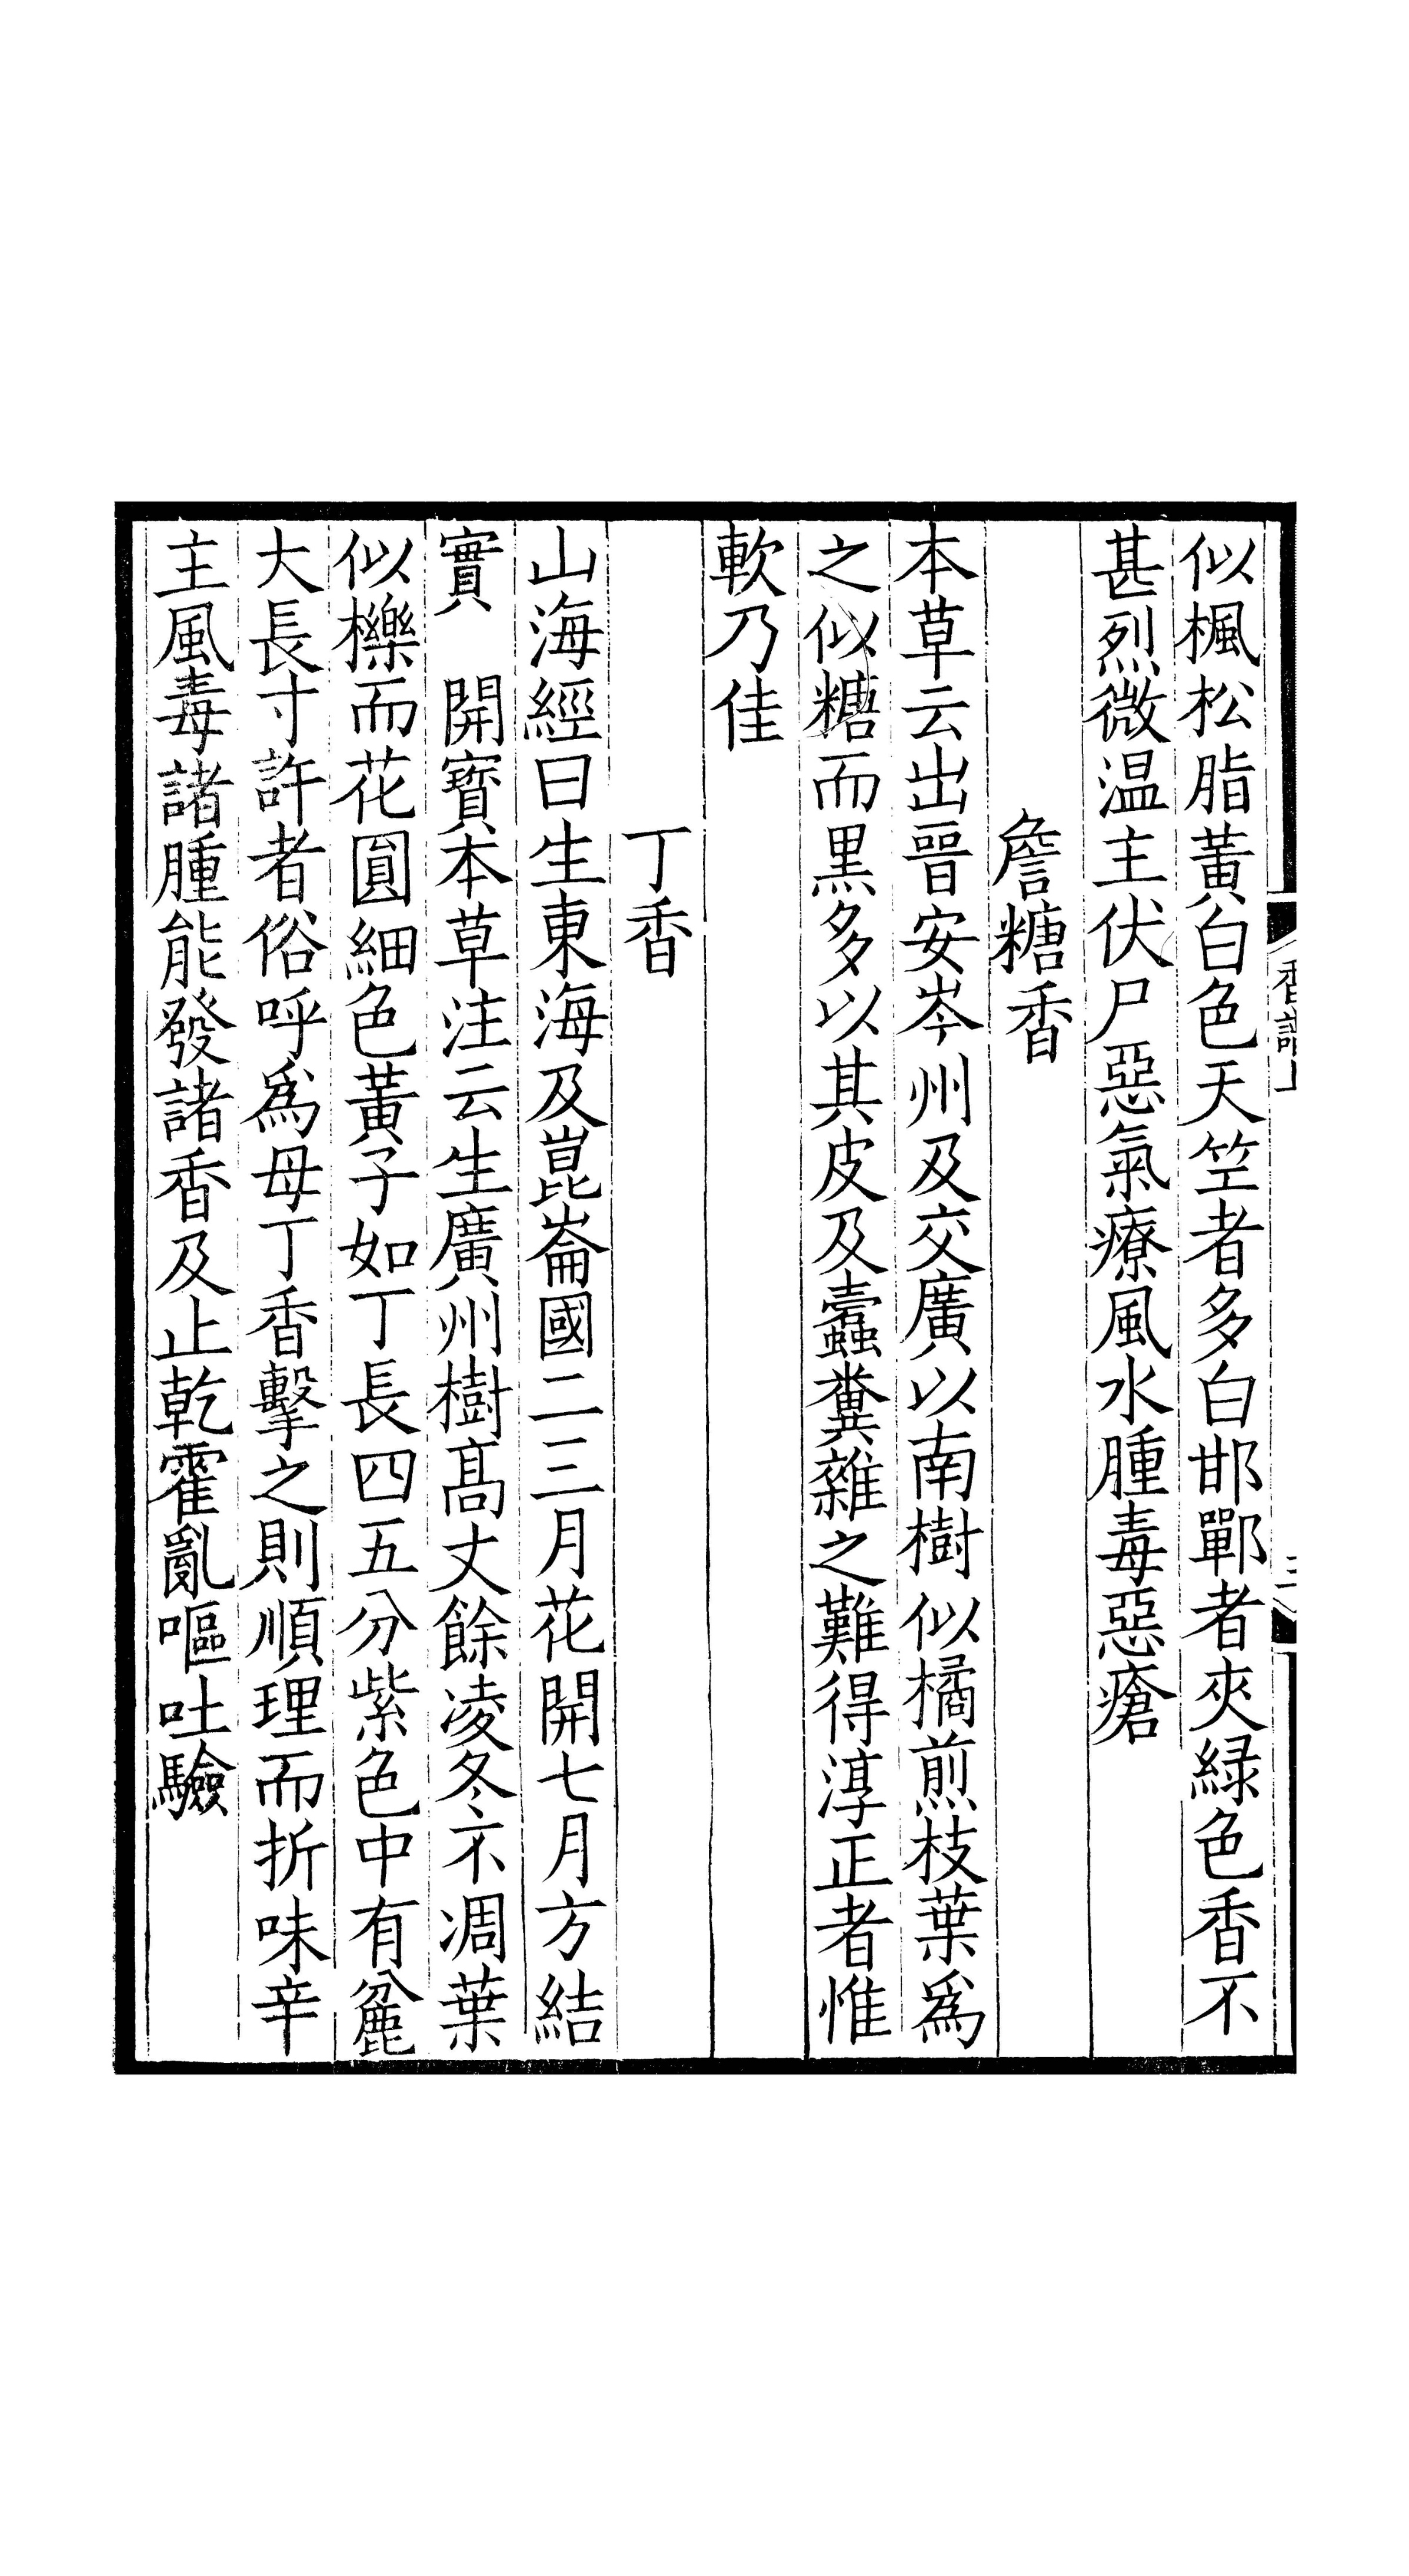 似楓松脂黃白色天竺者多白邯鄲者夾緑色香不
甚烈微温主伏尸惡氣療風水腫毒惡瘡
詹糖香
本草云出晉安岑州及交廣以南樹似橘煎枝葉爲
之似糖而黒多以其皮及蠧糞雜之難得淳正者惟
軟乃佳
丁香
山海經曰生東海及崑崙國二三月花開七月方結
實　開寶本草注云生廣州樹髙丈餘凌冬不凋葉
似櫟而花圓細色黃子如丁長四五分紫色中有麄
大長寸許者俗呼爲母丁香擊之則順理而折味辛
主風毒諸腫能發諸香及止乾霍亂嘔吐驗